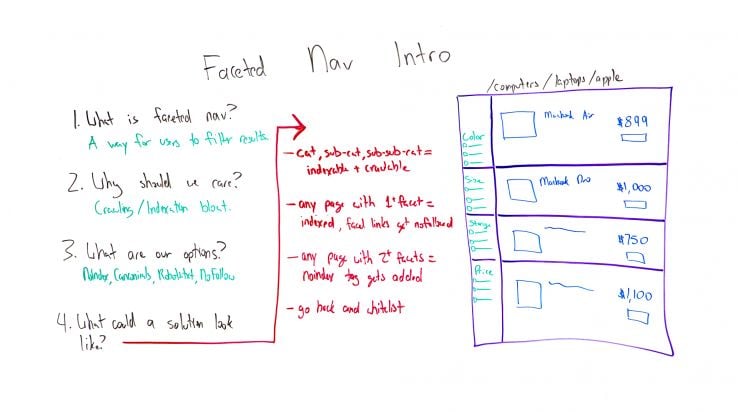 Faceted Nav Intro
1. What is faceted nav?
A way for users to filter results.
2. Why should we care?
Crawling/Indexation bloat.
3. What are our options?
Noindex, Canonicals, Robots.txt, Nofollow
4. What could a solution look
like?
- cat, sub-cat, sub-sub-cat =
indexable + crawlable
- any page with 1+ facet =
indexed, facet links get nofollowed
- any page with 2+ facets =
noindex tag gets added
- go back and whitelist
/computers/laptops/apple
Color
Size
Storage
Price
Macbook Air
$899
Macbook Pro
$1,000
$750
$1,100